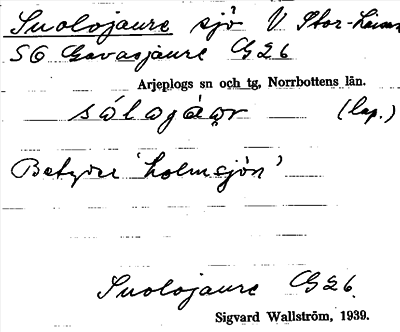 Suolojaure sjö V Stor-Laisan
SO Gavasjaure G26
Arjeplogs sn och tg, Norrbottens län.
sálojáųr (lap.)
Betyder 'holmsjön'
Suolojaure G26.
Sigvard Wallström, 1939.